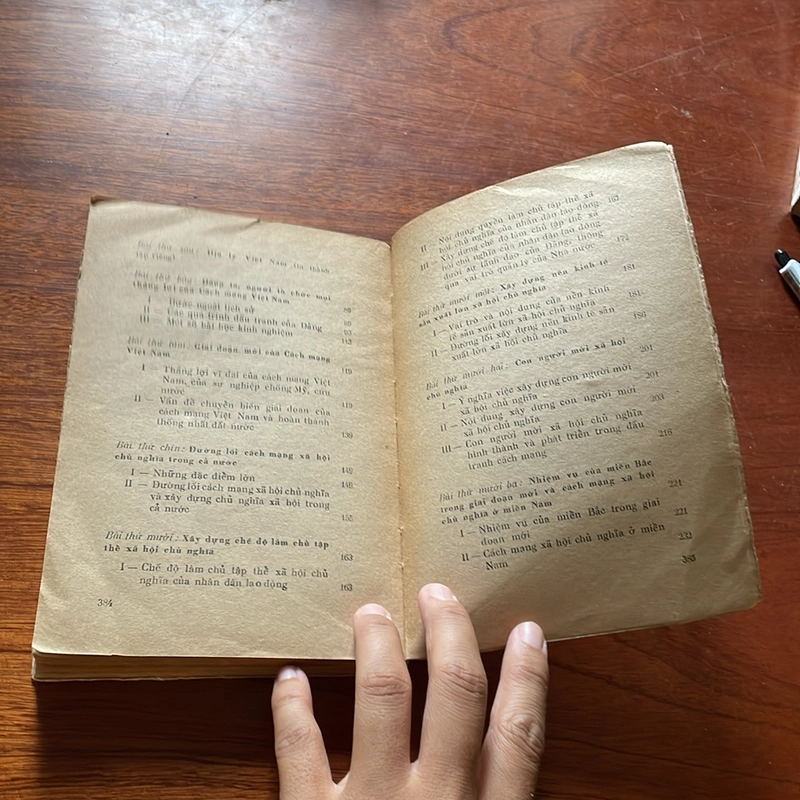 Bài thứ sáu: Địa lý Việt Nam (in thành
tập riêng)
Bài thứ bảy: Đảng ta, người tổ chức mọi
thắng lợi của Cách mạng Việt Nam
I — Bước ngoặt lịch sử
II — Các quá trình đấu tranh của Đảng
III — Một số bài học kinh nghiệm 112
Bài thứ tám: Giai đoạn mới của Cách mạng
Việt Nam 119
I — Thắng lợi vĩ đại của cách mạng Việt
Nam, của sự nghiệp chống Mỹ, cứu
nước 119
II — Vấn đề chuyển biến giai đoạn của
cách mạng Việt Nam và hoàn thành
thống nhất đất nước 139
Bài thứ chín: Đường lối cách mạng xã hội
chủ nghĩa trong cả nước 149
I — Những đặc điểm lớn 149
II — Đường lối cách mạng xã hội chủ nghĩa
và xây dựng chủ nghĩa xã hội trong
cả nước 155
Bài thứ mười: Xây dựng chế độ làm chủ tập
thể xã hội chủ nghĩa 163
I — Chế độ làm chủ tập thể xã hội chủ
nghĩa của nhân dân lao động 163
384
II — Nội dung quyền làm chủ tập thể xã
hội chủ nghĩa của nhân dân lao động. 167
III — Xây dựng chế độ làm chủ tập thể xã
hội chủ nghĩa của nhân dân lao động
dưới sự lãnh đạo của Đảng, thông
qua vai trò quản lý của Nhà nước 172
Bài thứ mười một: Xây dựng nền kinh tế
sản xuất lớn xã hội chủ nghĩa 181
I — Vai trò và nội dung của nền kinh
tế sản xuất lớn xã hội chủ nghĩa 181
II — Đường lối xây dựng nền kinh tế sản
xuất lớn xã hội chủ nghĩa
Bài thứ mười hai: Con người mới xã hội
chủ nghĩa 201
I — Ý nghĩa việc xây dựng con người mới
xã hội chủ nghĩa 201
II — Nội dung xây dựng con người mới
xã hội chủ nghĩa 203
III — Con người mới xã hội chủ nghĩa
hình thành và phát triển trong đấu
tranh cách mạng 216
Bài thứ mười ba: Nhiệm vụ của miền Bắc
trong giai đoạn mới và cách mạng xã hội
chủ nghĩa ở miền Nam 221
I — Nhiệm vụ của miền Bắc trong giai
đoạn mới 221
II — Cách mạng xã hội chủ nghĩa ở miền
Nam 232
385